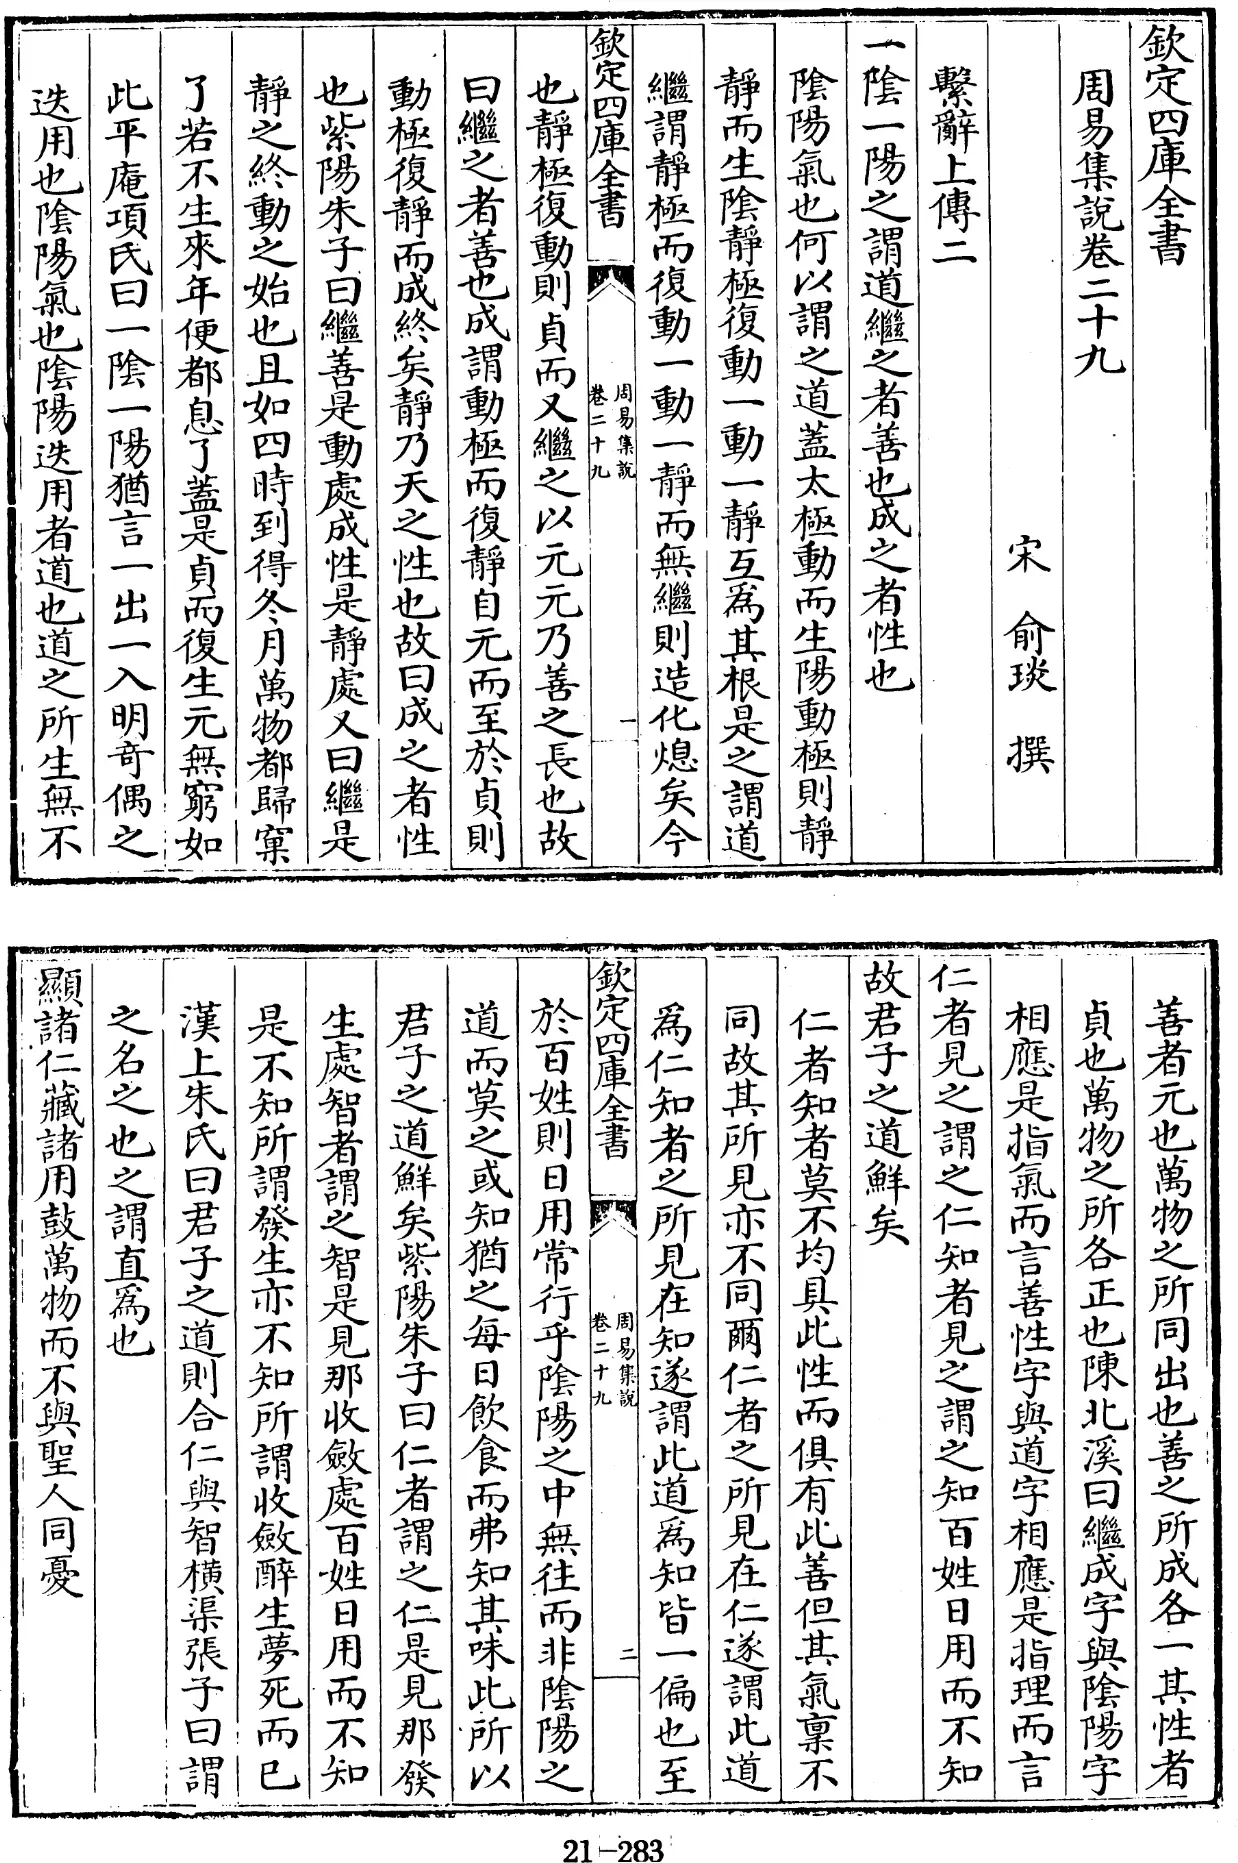 欽定四庫全書
周易集說卷二十九
宋 俞琰 撰
繫辭上傳二
一陰一陽之謂道繼之者善也成之者性也
陰陽氣也何以謂之道蓋太極動而生陽動極則靜
靜而生陰靜極復動一動一靜互為其根是之謂道
繼謂靜極而復動一動一靜而無繼則造化熄矣今
欽定四庫全書
周易集說
卷二十九
一
也靜極復動則貞而又繼之以元元乃善之長也故
曰繼之者善也成謂動極而復靜自元而至於貞則
動極復靜而成終矣靜乃天之性也故曰成之者性
也紫陽朱子曰繼善是動處成性是靜處又曰繼是
靜之終動之始也且如四時到得冬月萬物都歸窠
了若不生來年便都息了蓋是貞而復生元無窮如
此平庵項氏曰一陰一陽猶言一出一入明奇偶之
迭用也陰陽氣也陰陽迭用者道也道之所生無不
善者元也萬物之所同出也善之所成各一其性者
貞也萬物之所各正也陳北溪曰繼成字與陰陽字
相應是指氣而言善性字與道字相應是指理而言
仁者見之謂之仁知者見之謂之知百姓日用而不知
故君子之道鮮矣
仁者知者莫不均具此性而俱有此善但其氣稟不
同故其所見亦不同爾仁者之所見在仁遂謂此道
為仁知者之所見在知遂謂此道為知皆一偏也至
欽定四庫全書
周易集說
卷二十九
二
於百姓則日用常行乎陰陽之中無往而非陰陽之
道而莫之或知猶之每日飲食而弗知其味此所以
君子之道鮮矣紫陽朱子曰仁者謂之仁是見那發
生處智者謂之智是見那收斂處百姓日用而不知
是不知所謂發生亦不知所謂收斂醉生夢死而已
漢上朱氏曰君子之道則合仁與智橫渠張子曰謂
之名之也之謂直為也
顯諸仁藏諸用鼓萬物而不與聖人同憂
21-283